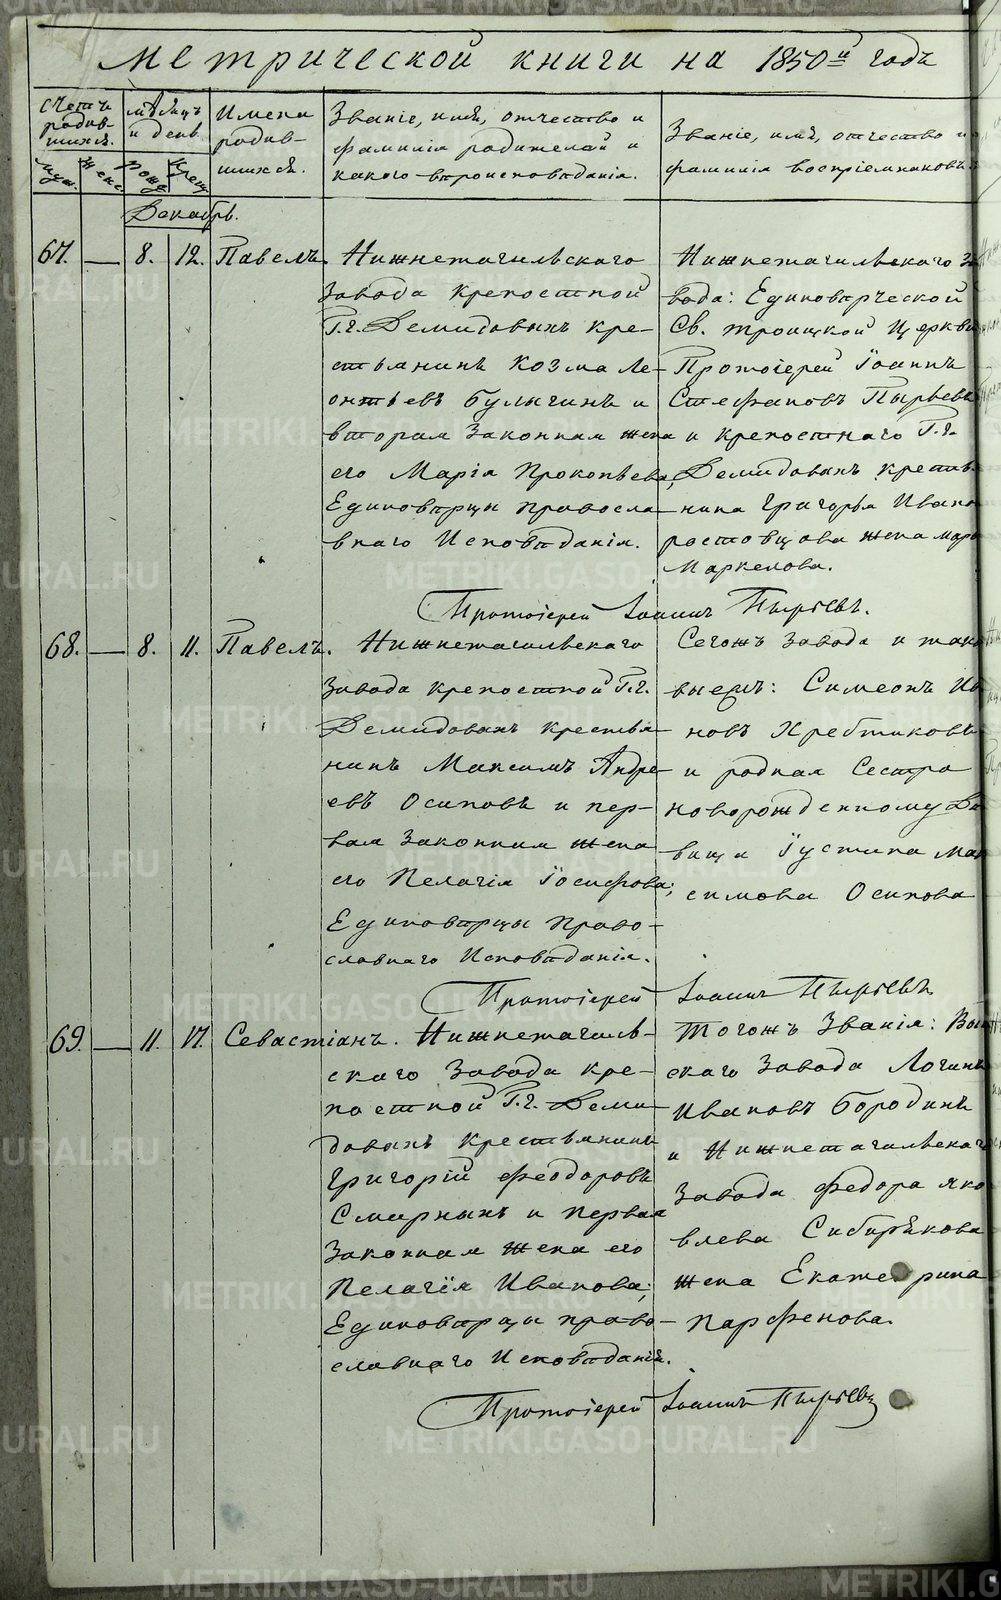 Метрической книги на 1850й годъ
Счетъ родив-шихся.
Муж.
Женс
Мѣсяцъ и день
Рожд
Крещ
Имена родив-шихся.
Званіе, имя, отчество и
фамилія родителей и
какого вѣроисповѣданія.
Званіе, имя, отчество и
фамилія воспріемниковъ
Декабрь.
67. — 8. 12. Павелъ.
Нижнетагильскаго
Завода крепостной
Г.г. Демидовыхъ кре-
стьянинъ Козма Ле-
онтьевъ Булыгинъ и
вторая Законная жена
его Марія Прокопьева,
Единовѣрцы правосла-
внаго Исповѣданія.
Нижнетагильскаго За
вода: Единовѣрческой
Св. Троицкой Церкви
Протоіерей Іоаннъ
Стефановъ Пырьевъ
и крепостнаго Г.г.
Демидовыхъ крестья
нина Григорья Ивано
ростовцова жена Марь
Маркелова.
Протоіерей Іоаннъ Пырьевъ.
68. — 8. 11. Павелъ.
Нижнетагильскаго
Завода крепостной Г.г.
Демидовыхъ крестья-
нинъ Максимъ Андре-
евъ Осиповъ и пер-
вая Законная жена
его Пелагія Іосифова;
Единовѣрцы Право-
славнаго Исповѣданія.
Сегожъ Завода и тако
выежъ: Симеонъ Ив
новъ Хребтиковъ
и родная Сестра
новорожденному Дѣ
вица Іустина Мак
симова Осипова
Протоіерей Іоаннъ Пырьевъ
69. — 11. 17. Севастіанъ.
Нижнетагиль-
скаго Завода кре-
постной Г.г. Деми-
довыхъ крестьянинъ
Григорій Феодоровъ
Смирныхъ и первая
Законная жена его
Пелагія Иванова;
Единовѣрцы право-
славнаго Исповѣданія.
Тогожъ Званія:
скаго Завода Логинъ
Ивановъ Бородинъ
и Нижнетагильскаго
Завода Федора Яко
влева Сибирякова
жена Екатерина
Парфенова.
Протоіерей Іоаннъ Пырьевъ
METRIKI.GASO-URAL.RU